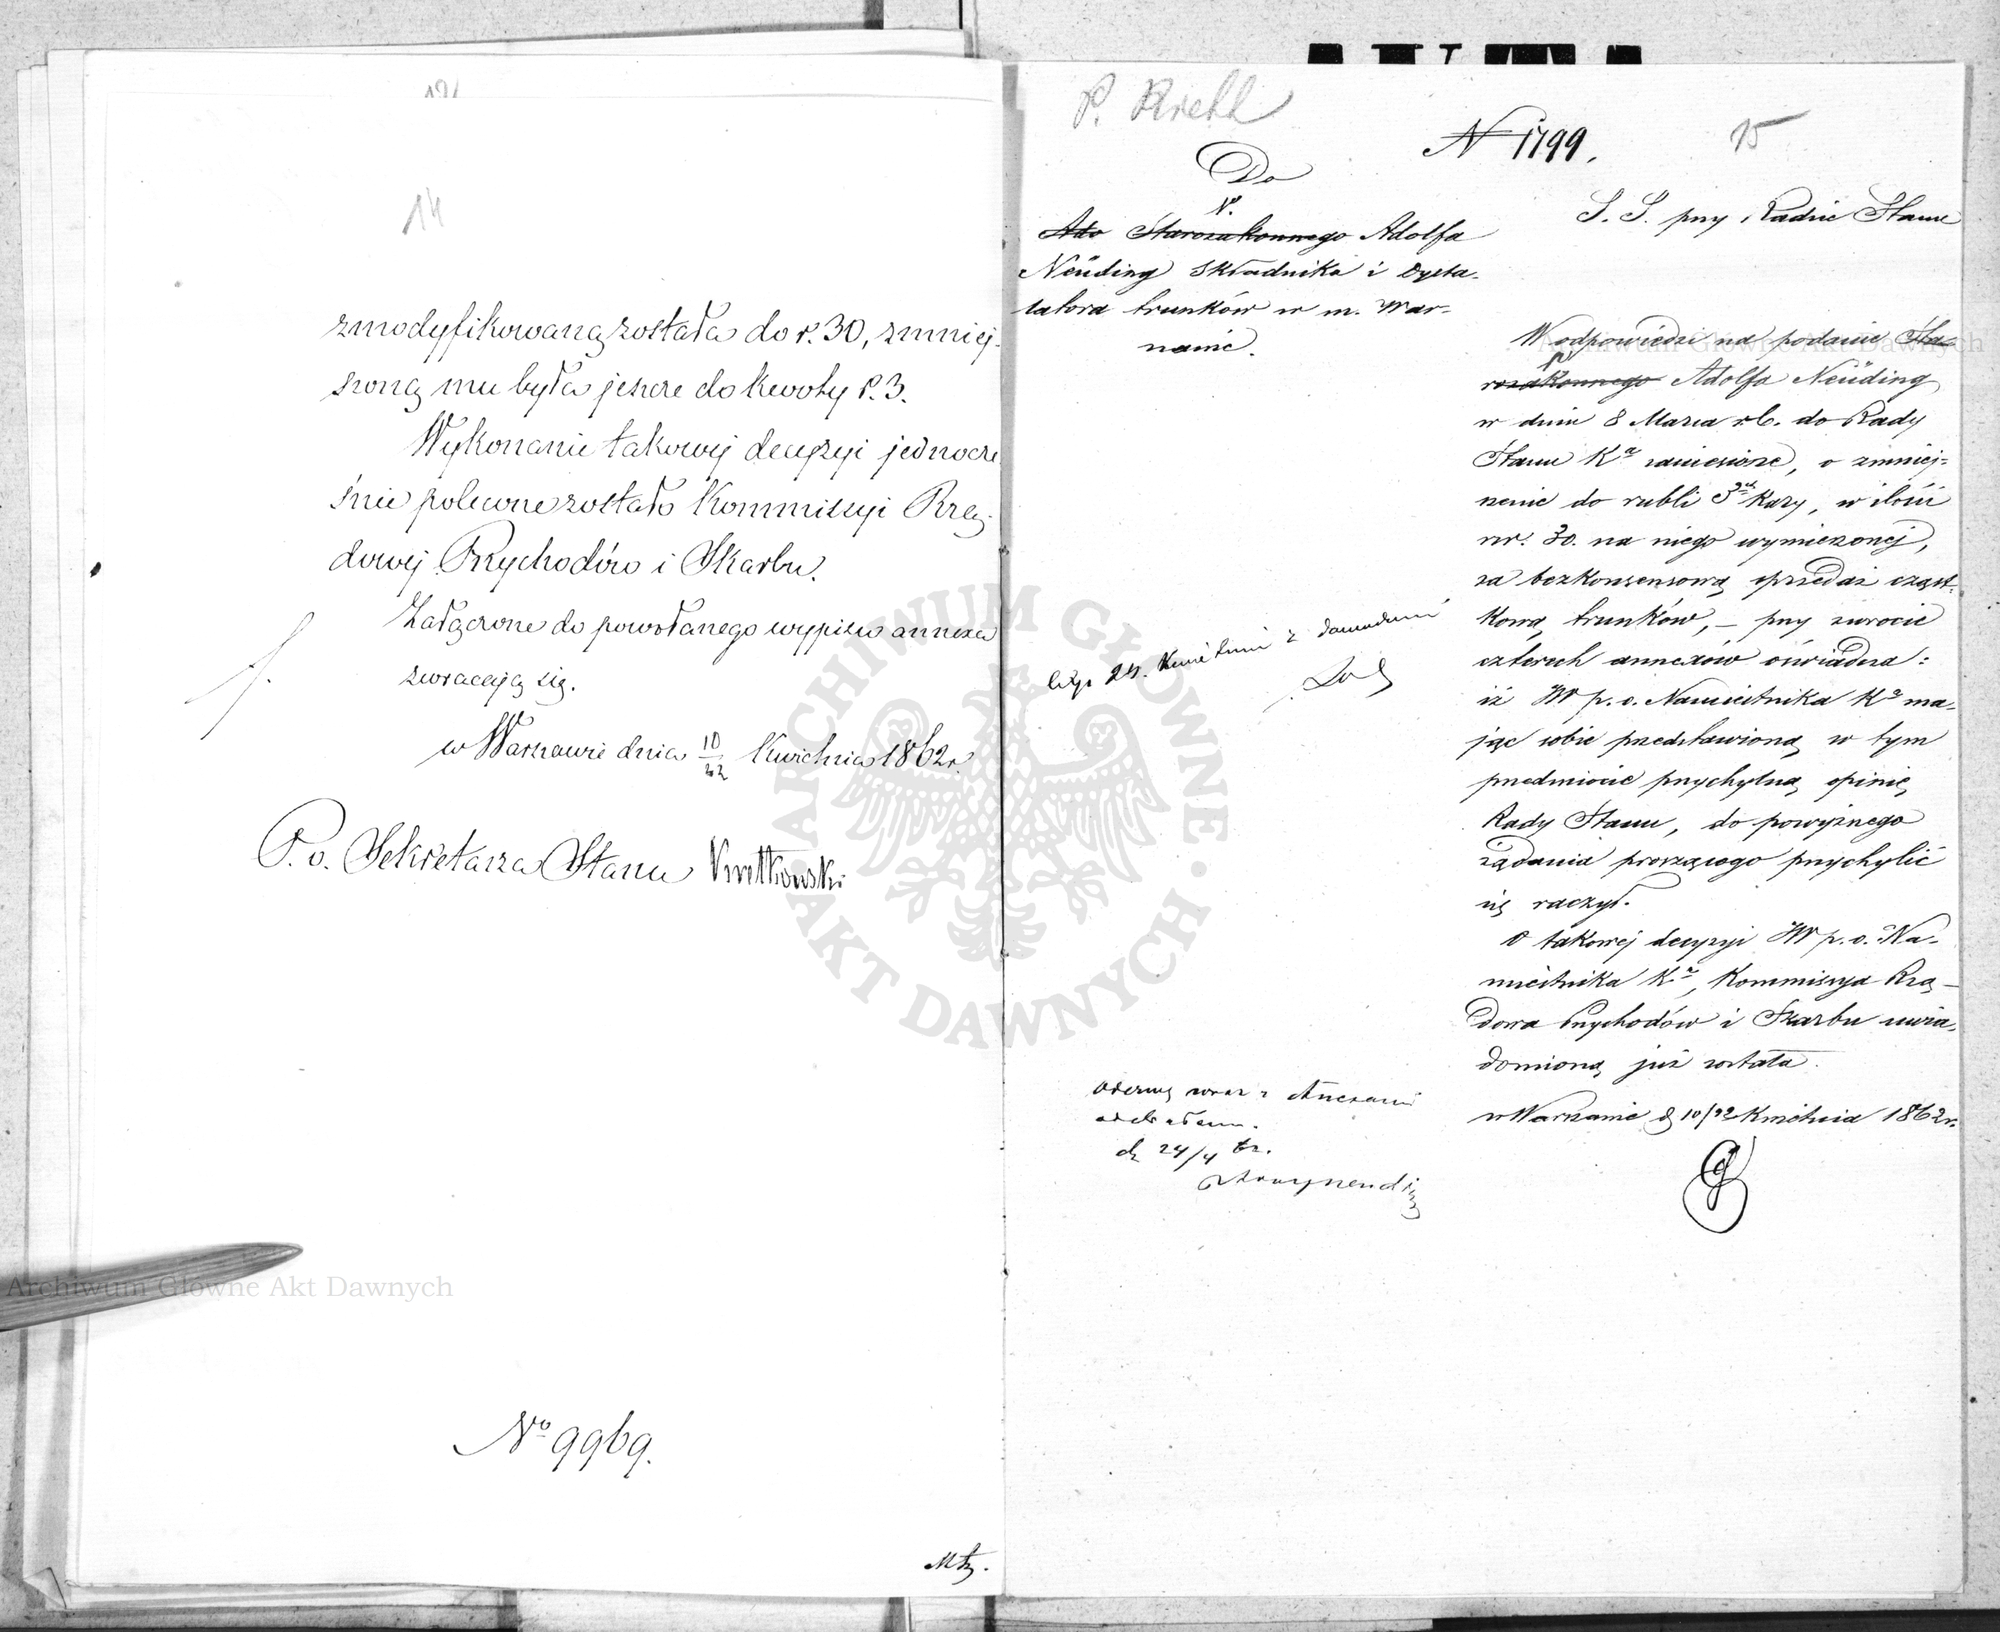 14
zmodyfikowaną została do r. 30, zmniej-
szoną mu była jeszcze do kwoty r. 3.
Wykonanie takowej decyzyi jednocze
śnie polecone zostało Kommissyi Rzą-
dowej Przychodów i Skarbu.
Załączone do powołanego wypisu annexa
zwracają się.
w Warszawie dnia 10/22 Kwietnia 1862 r.
P. o. Sekretarza Stanu Kretkowski
No 9969.
P. Krehl
N 1799.
15
Do
P.
Ado Starozakonnego Adolfa
Neüding Składnika i Dysta-
latora trunków w m. War-
szawie.
S. S. przy Radzie Stanu
W odpowiedzi na podanie Sta-
P.
rozakonnego Adolfa Neüding
w dniu 8 Marca r.b. do Rady
Stanu Ka zaniesione, o zmniej-
szenie do rubli 3ch kary, w ilości
rsr. 30. na niego wymierzonej,
za bezkonsensową sprzedaż cząst-
kową trunków, – przy zwrocie
czterech annexów oświadcza:
iż JW p. o. Namiestnika Ka ma-
jąc sobie przedstawioną w tym
przedmiocie przychylną opinię
Rady Stanu, do powyższego
żądania proszącego przychylić
się raczył.
O takowej decyzyi JW p. o. Na-
miestnika Ka, Kommissya Rzą-
dowa Przychodów i Skarbu uwia-
domioną już została.
w Warszawie d 10/22 Kwietnia 1862 r.
24. Kwietnia z
wraz z Anexami
odebrałem.
d. 24/4
Archiwum Główne Akt Dawnych
Archiwum Główne Akt Dawnych
ARCHIWUM GŁÓWNE · AKT DAWNYCH ·